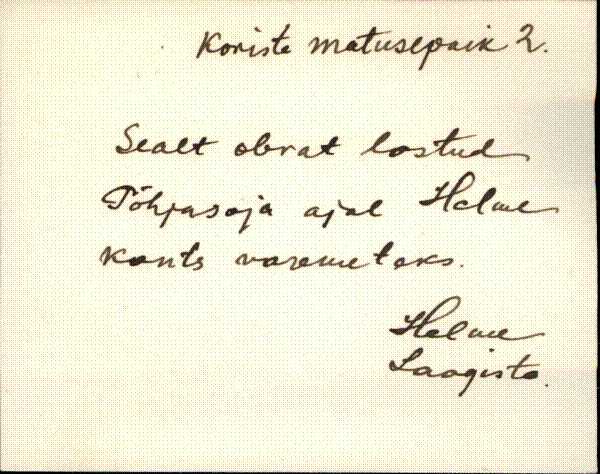 Koriste matusepaik 2.
Sealt olevat lastud
Põhjasõja ajal Helme
kants varemeteks.
Helme
Laagiste.